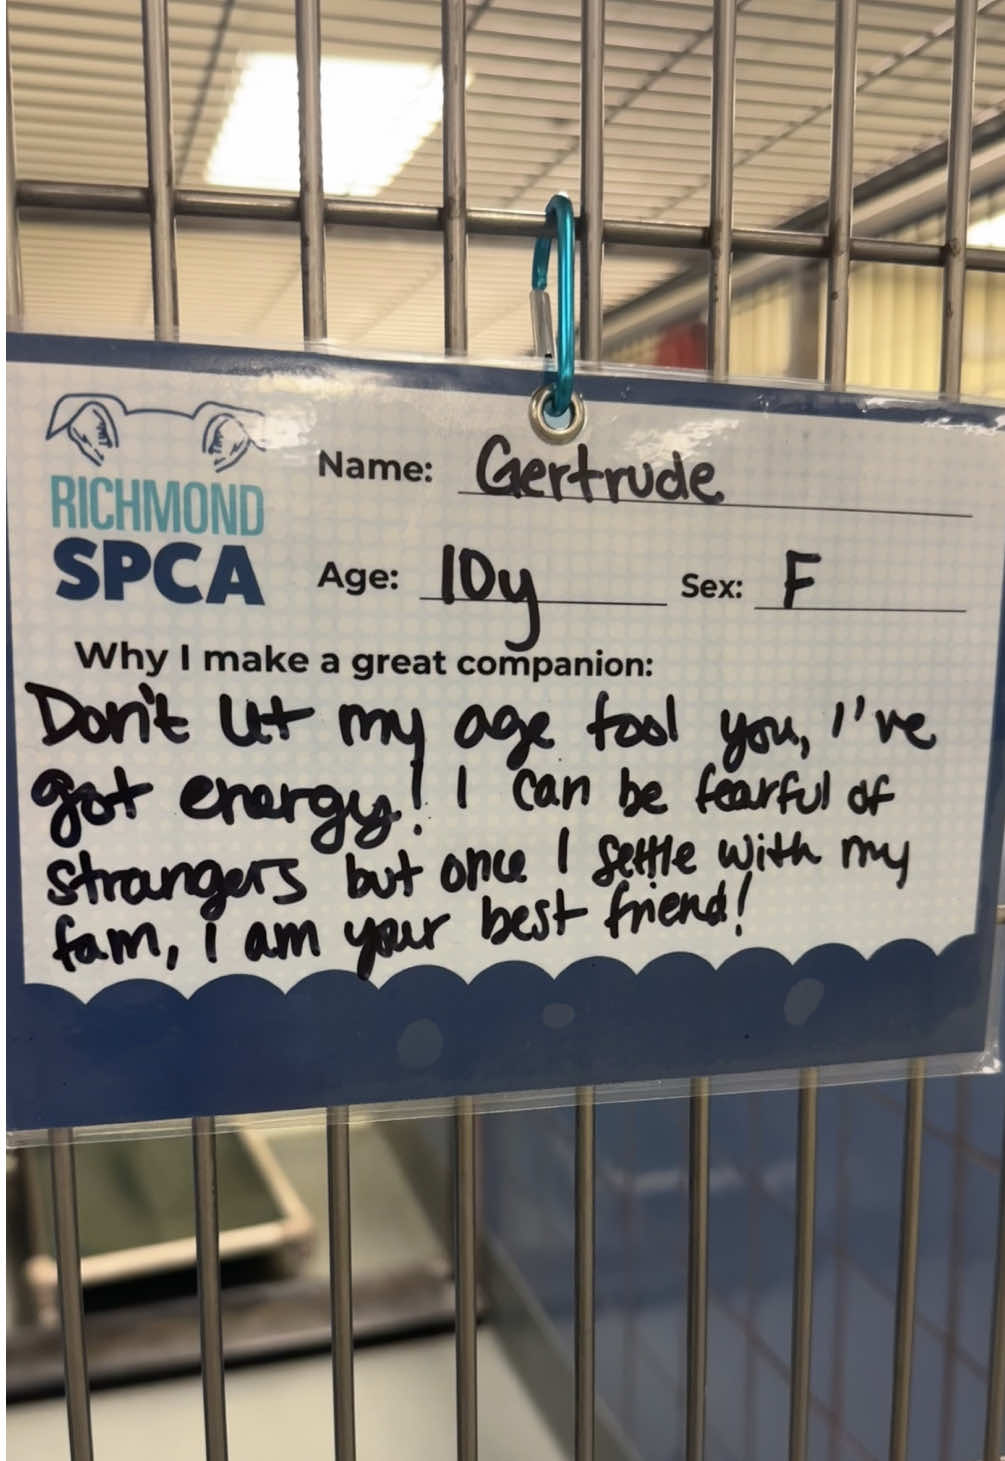 RICHMOND
SPCA
Name: Gertrude
Age: 10y Sex: F
Why I make a great companion:
Don't let my age fool you, I've
got energy! I can be fearful of
strangers but once I settle with my
fam, i am your best friend!